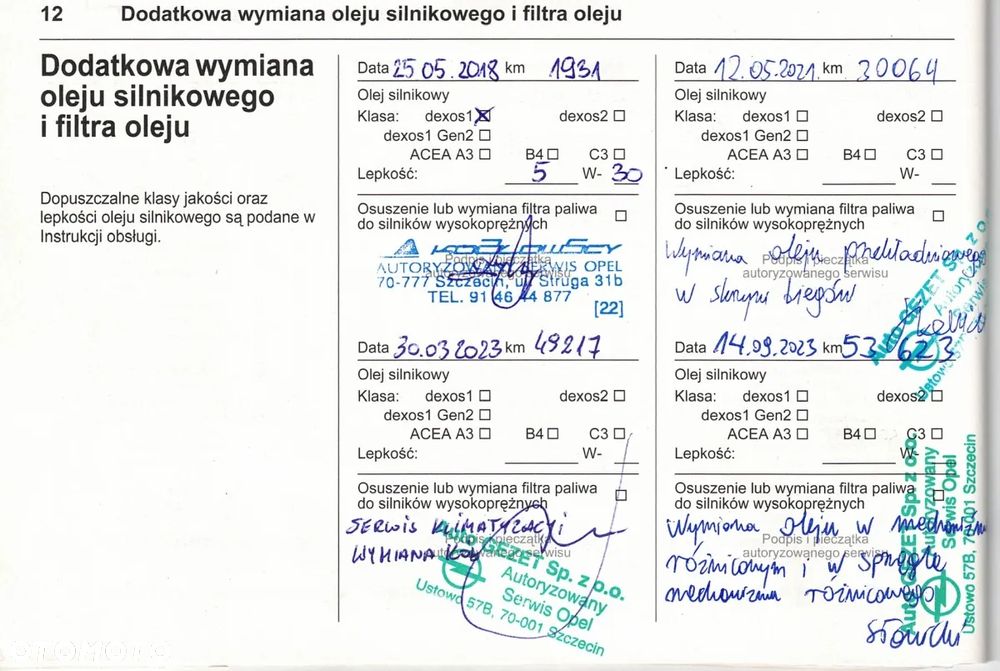 12 Dodatkowa wymiana oleju silnikowego i filtra oleju
Dodatkowa wymiana
oleju silnikowego
i filtra oleju
Dopuszczalne klasy jakości oraz
lepkości oleju silnikowego są podane w
Instrukcji obsługi.
Data 25 05. 2018 km 1931
Olej silnikowy
Klasa: dexos1 ☒ dexos2 ☐
dexos1 Gen2 ☐
ACEA A3 ☐ B4 ☐ C3 ☐
Lepkość: 5 W- 30
Osuszenie lub wymiana filtra paliwa ☐
do silników wysokoprężnych
Podpis i pieczątka
autoryzowanego serwisu
AUTORYZOWANY SERWIS OPEL
70-777 Szczecin, ul. Struga 31b
TEL. 91 46 44 877
[22]
Data 12.05.2021. km 30064
Olej silnikowy
Klasa: dexos1 ☐ dexos2 ☐
dexos1 Gen2 ☐
ACEA A3 ☐ B4 ☐ C3 ☐
Lepkość: W-
Osuszenie lub wymiana filtra paliwa ☐
do silników wysokoprężnych
Podpis i pieczątka
autoryzowanego serwisu
Wymiana oleju przekładniowego
w skrzyni biegów
Auto GEZET Sp. z o.o.
Autoryzowany
Serwis
Data 30.03 2023 km 49217
Olej silnikowy
Klasa: dexos1 ☐ dexos2 ☐
dexos1 Gen2 ☐
ACEA A3 ☐ B4 ☐ C3 ☐
Lepkość: W-
Osuszenie lub wymiana filtra paliwa ☐
do silników wysokoprężnych
Podpis i pieczątka
autoryzowanego serwisu
SERWIS KLIMATYZACJI
WYMIANA
Auto GEZET Sp. z o.o.
Autoryzowany
Serwis Opel
Ustowo 57B, 70-001 Szczecin
Data 14.09.2023 km 53 623
Olej silnikowy
Klasa: dexos1 ☐ dexos2 ☐
dexos1 Gen2 ☐
ACEA A3 ☐ B4 ☐ C3 ☐
Lepkość: W-
Osuszenie lub wymiana filtra paliwa ☐
do silników wysokoprężnych
Podpis i pieczątka
autoryzowanego serwisu
Wymiana oleju w mechanizm
różnicowym i w sprzęgle
mechanizma różnicowego
Auto GEZET Sp. z o.o.
Autoryzowany
Serwis Opel
Ustowo 57B, 70-001 Szczecin
OTOMOTO